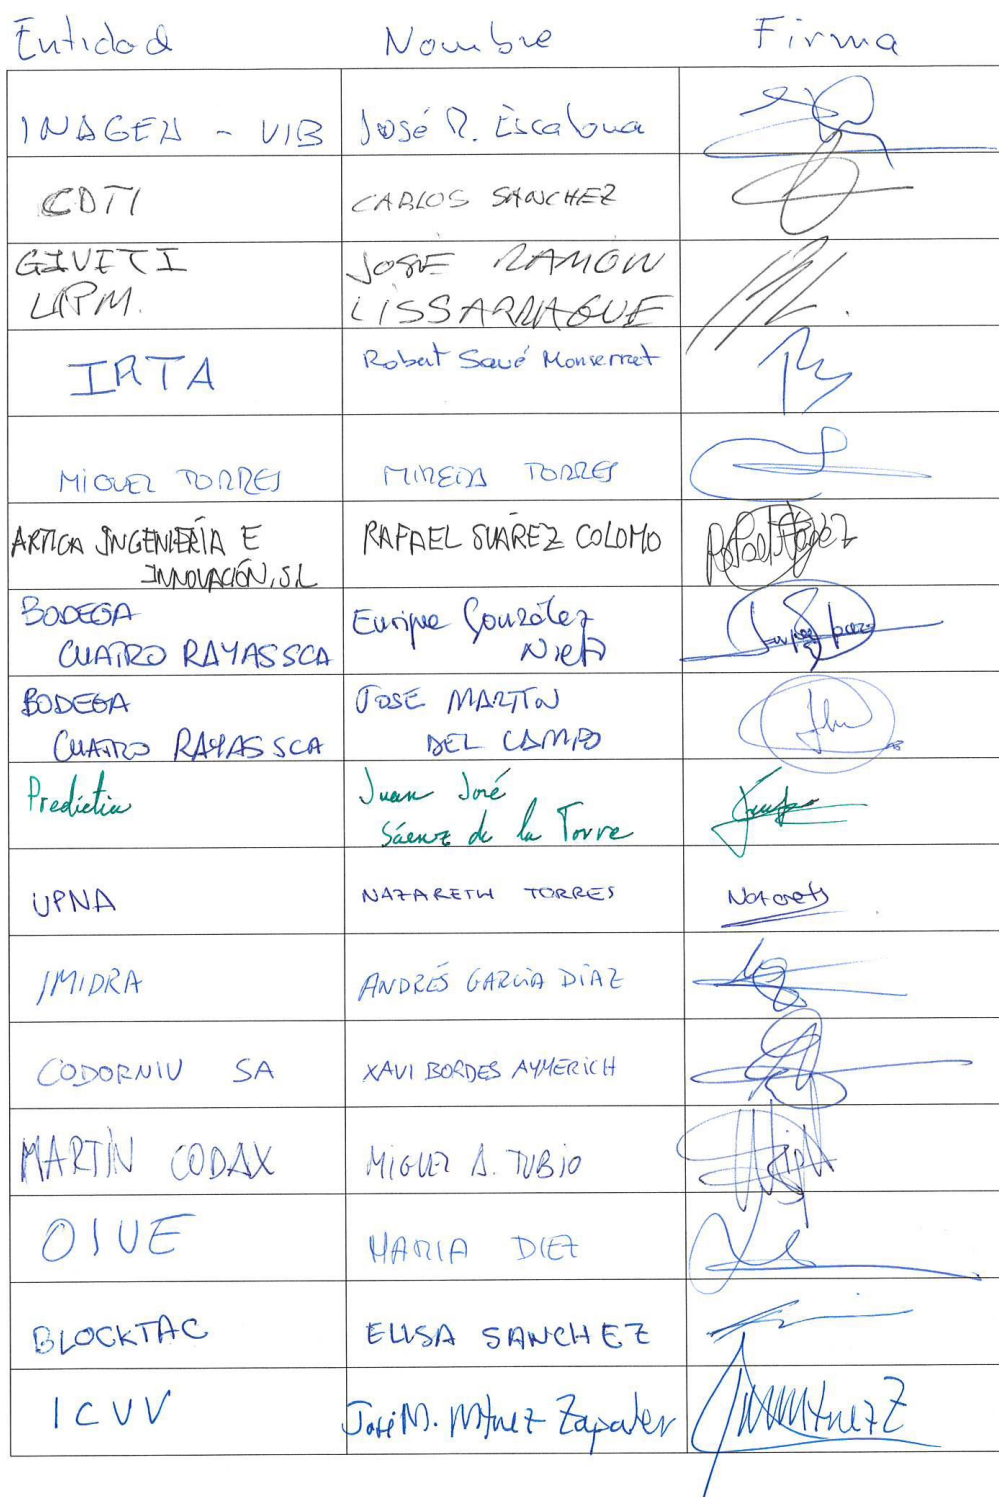 Entidad Nombre Firma
INAGEN - VIB José R. Escalona
CDTI CARLOS SANCHEZ
GIVITI JOSÉ RAMÓN
UPM. LISSARRAGUE
IRTA Robert Savé Monserrat
MIGUEL TORRES MIREIA TORRES
ARTICA INGENIERÍA E RAFAEL SUÁREZ COLOMO
INNOVACIÓN, SL
BODEGA Enrique González
CUATRO RAYAS SCA Nieto
BODEGA JOSE MARTIN
CUATRO RAYAS SCA DEL CAMPO
Predictia Juan José
Sáenz de la Torre
UPNA NAZARETH TORRES Nazareth
IMIDRA ANDRÉS GARCÍA DÍAZ
CODORNIU SA XAVI BORDES AYMERICH
MARTÍN CODAX MIGUEL A. TUBIO
OIVE MARIA DIEZ
BLOCKTAC ELISA SANCHEZ
ICVV José M. Mtnez Zapater